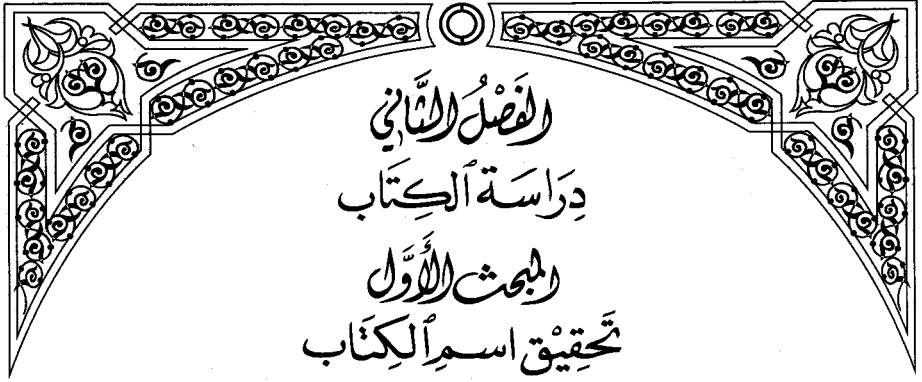 الفَصْلُ الثَّاني
دِرَاسَة ٱلكِتَاب
المبحث الأَوَّل
تَحقِيْق اسمِ ٱلكِتَاب